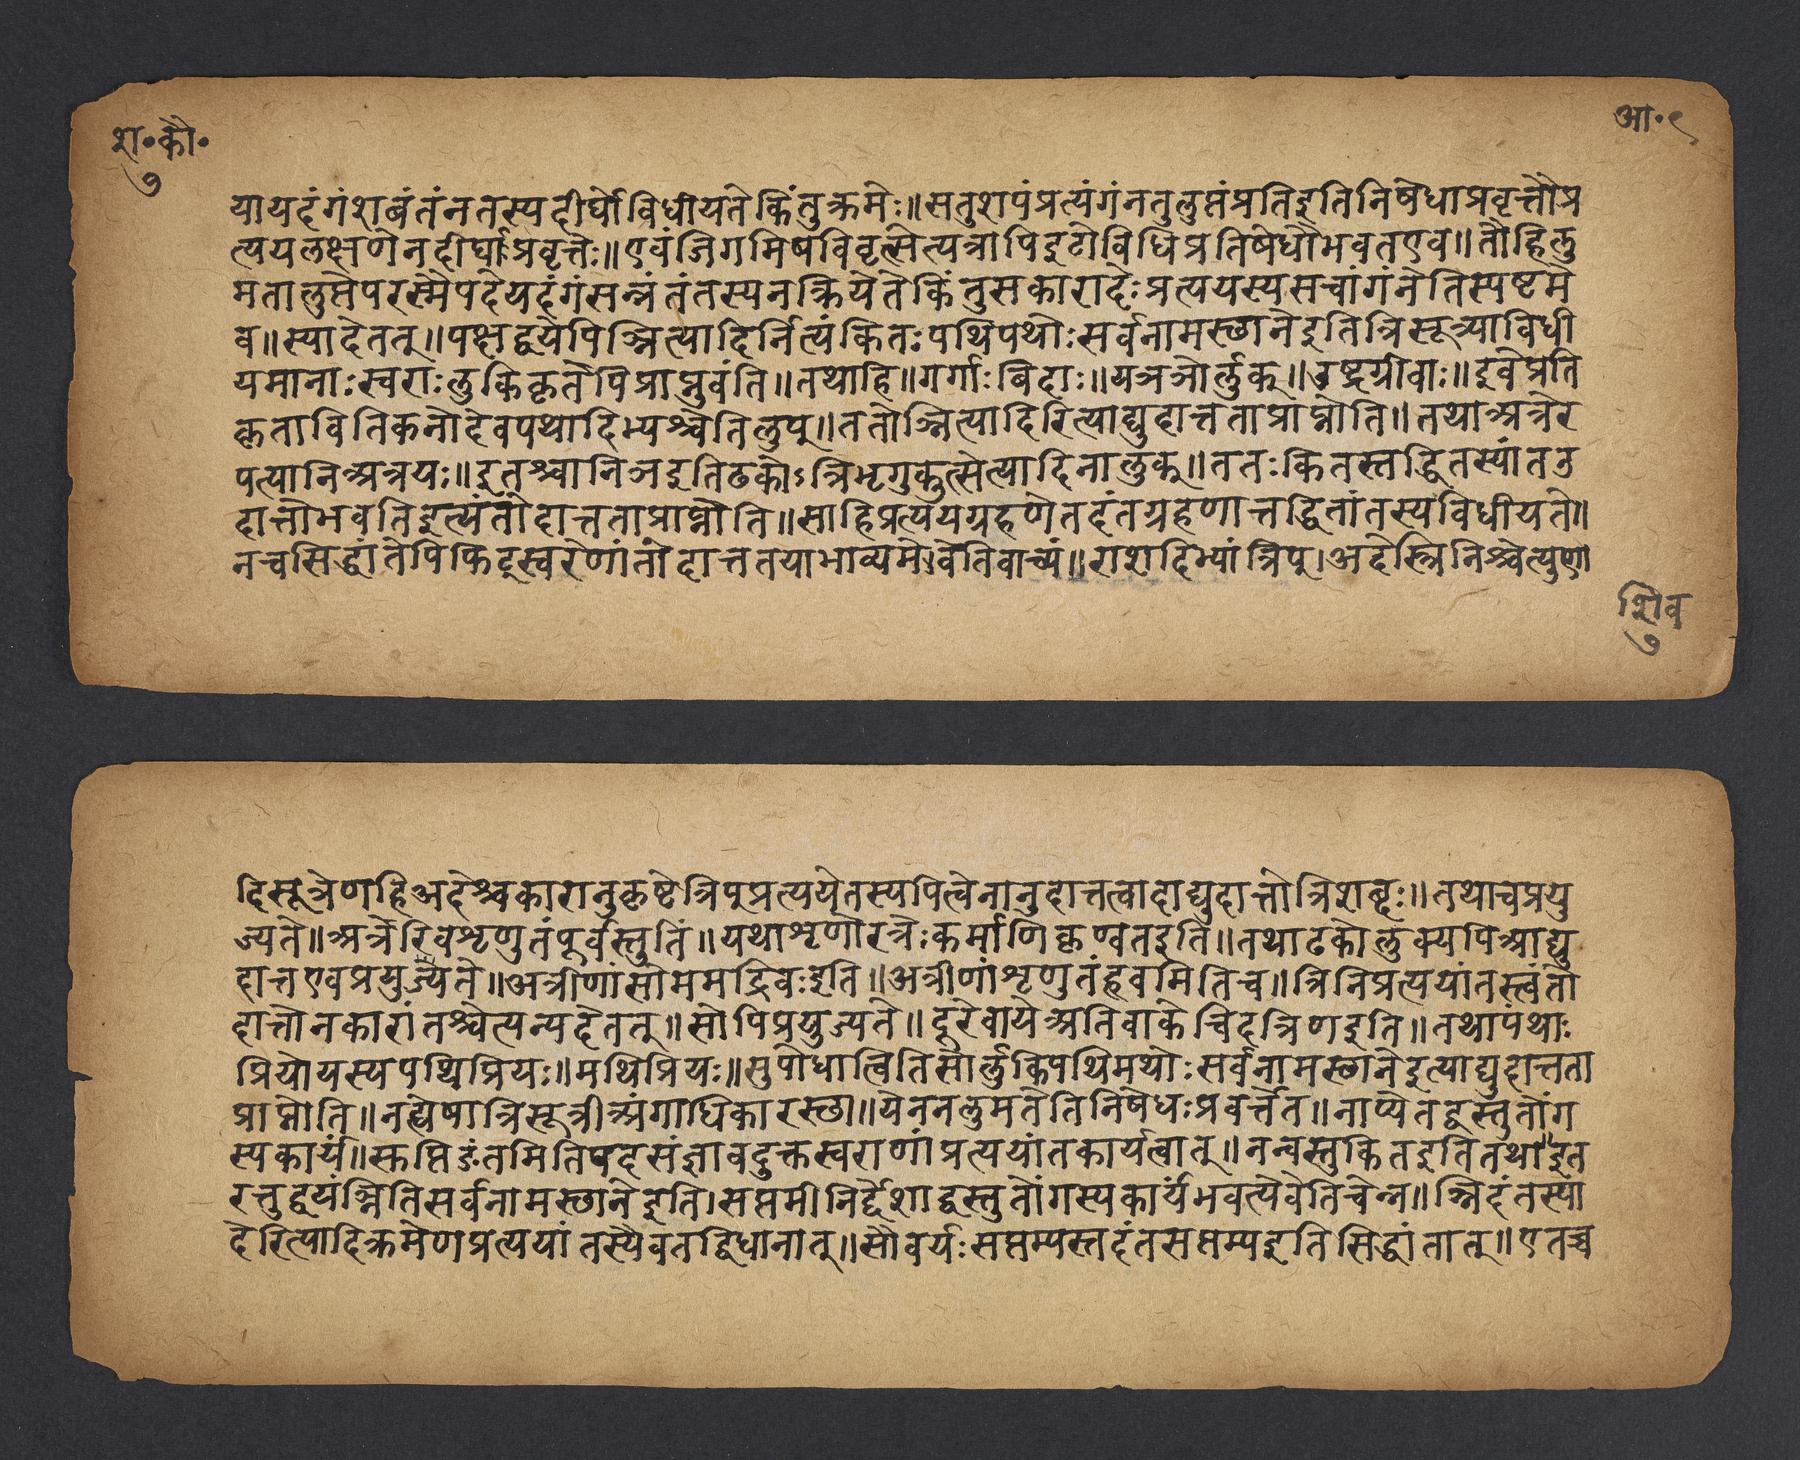 श॰कौ॰
७
आ॰९
यायदंगंशबंतंनतस्यदीर्घोविधीयतेकिंतुक्रमेः॥सतुशपंप्रत्यंगंनतुलुप्तंप्रतिइतिनिषेधाप्रवृत्तौप्र
त्ययलक्षणेनदीर्घाप्रवृत्तेः॥एवंजिगमिषविवृत्सेत्यत्रापिइटोविधिप्रतिषेधौभवतएव॥तौहिलु
मतालुप्तेपरस्मैपदेयदंगंसन्नंतंतस्यनक्रियेतेकिंतुसकारादेःप्रत्ययस्यसचांगंनेतिस्पष्टमे
व॥स्यादेतत्॥पक्षद्वयेपिञ्नित्यादिर्नित्यंकितःपथिमथोःसर्वनामस्छानेइतित्रिसूत्र्याविधी
यमानाःस्वराःलुकिकृतेपिप्राप्नुवंति॥तथाहि॥गर्गाःबिदाः॥यञञोर्लुक्॥उष्ट्रग्रीवाः॥इवेप्रति
कृतावितिकनोदेवपथादिभ्यश्चेतिलुप्॥ततोञ्नित्यादिरित्याद्युदात्तताप्राप्नोति॥तथाअत्रेर
पत्यानिअत्रयः॥इतश्चानिञइतिढकोऽत्रिभृगुकुत्सेत्यादिनालुक्॥ततःकितस्तद्धितस्यांतउ
दात्तोभवतिइत्यंतोदात्तताप्राप्नोति॥साहिप्रत्ययग्रहणेतदंतग्रहणात्तद्धितांतस्यविधीयते॥
नचसिद्धांतेपिफिट्स्वरेणांतोदात्ततयाभाव्यमेवेतिवाच्यं॥राशदिभ्यांत्रिप्।अदेस्त्रिनिश्चेत्युणा
शिव
७
दिसूत्रेणहिअदेश्चकारानुकृष्टेत्रिप्प्रत्ययेतस्यपित्वेनानुदात्तत्वादाद्युदात्तोत्रिशब्दः॥तथाचप्रयु
ज्यते॥अत्रेरिवशृणुतंपूर्वस्तुतिं॥यथाशृणोरत्रेःकर्माणिकृण्वतइति॥तथाढकोलुक्यपिआद्यु
दात्तएवप्रयुज्यते॥अत्रीणांसोममद्रिवःइति॥अत्रीणांशृणुतंहवमितिच॥त्रिनिप्रत्ययांतस्त्वंतो
दात्तोनकारांतश्चेत्यन्यदेतत्॥सोपिप्रयुज्यते॥दूरेवायेअंतिवाकेचिदत्रिणइति॥तथापंथाः
प्रियोयस्यपथिप्रियः॥मथिप्रियः॥सुपोधात्वितिसोर्लुकिपथिमथोःसर्वनामस्छानेइत्याद्युदात्तता
प्राप्नोति॥नह्येषात्रिसूत्रीअंगाधिकारस्छा॥येननलुमतेतिनिषेधःप्रवर्त्तेत॥नाप्येतद्वस्तुतोंग
स्यकार्यं॥सुप्तिङंतमितिपदसंज्ञावदुक्तस्वराणांप्रत्ययांतकार्यत्वात्॥नन्वस्तुकितइतितथाइत
रत्तुद्वयंञ्नितिसर्वनामस्छानेइति।सप्तमीनिर्द्देशाद्वस्तुतोंगस्यकार्यंभवत्येवेतिचेन्न॥ञ्निदंतस्या
देरित्यादिक्रमेणप्रत्ययांतस्यैवतद्विधानात्॥सौवर्यःसप्तम्यस्तदंतसप्तम्यइतिसिद्धांतात्॥एतच्च